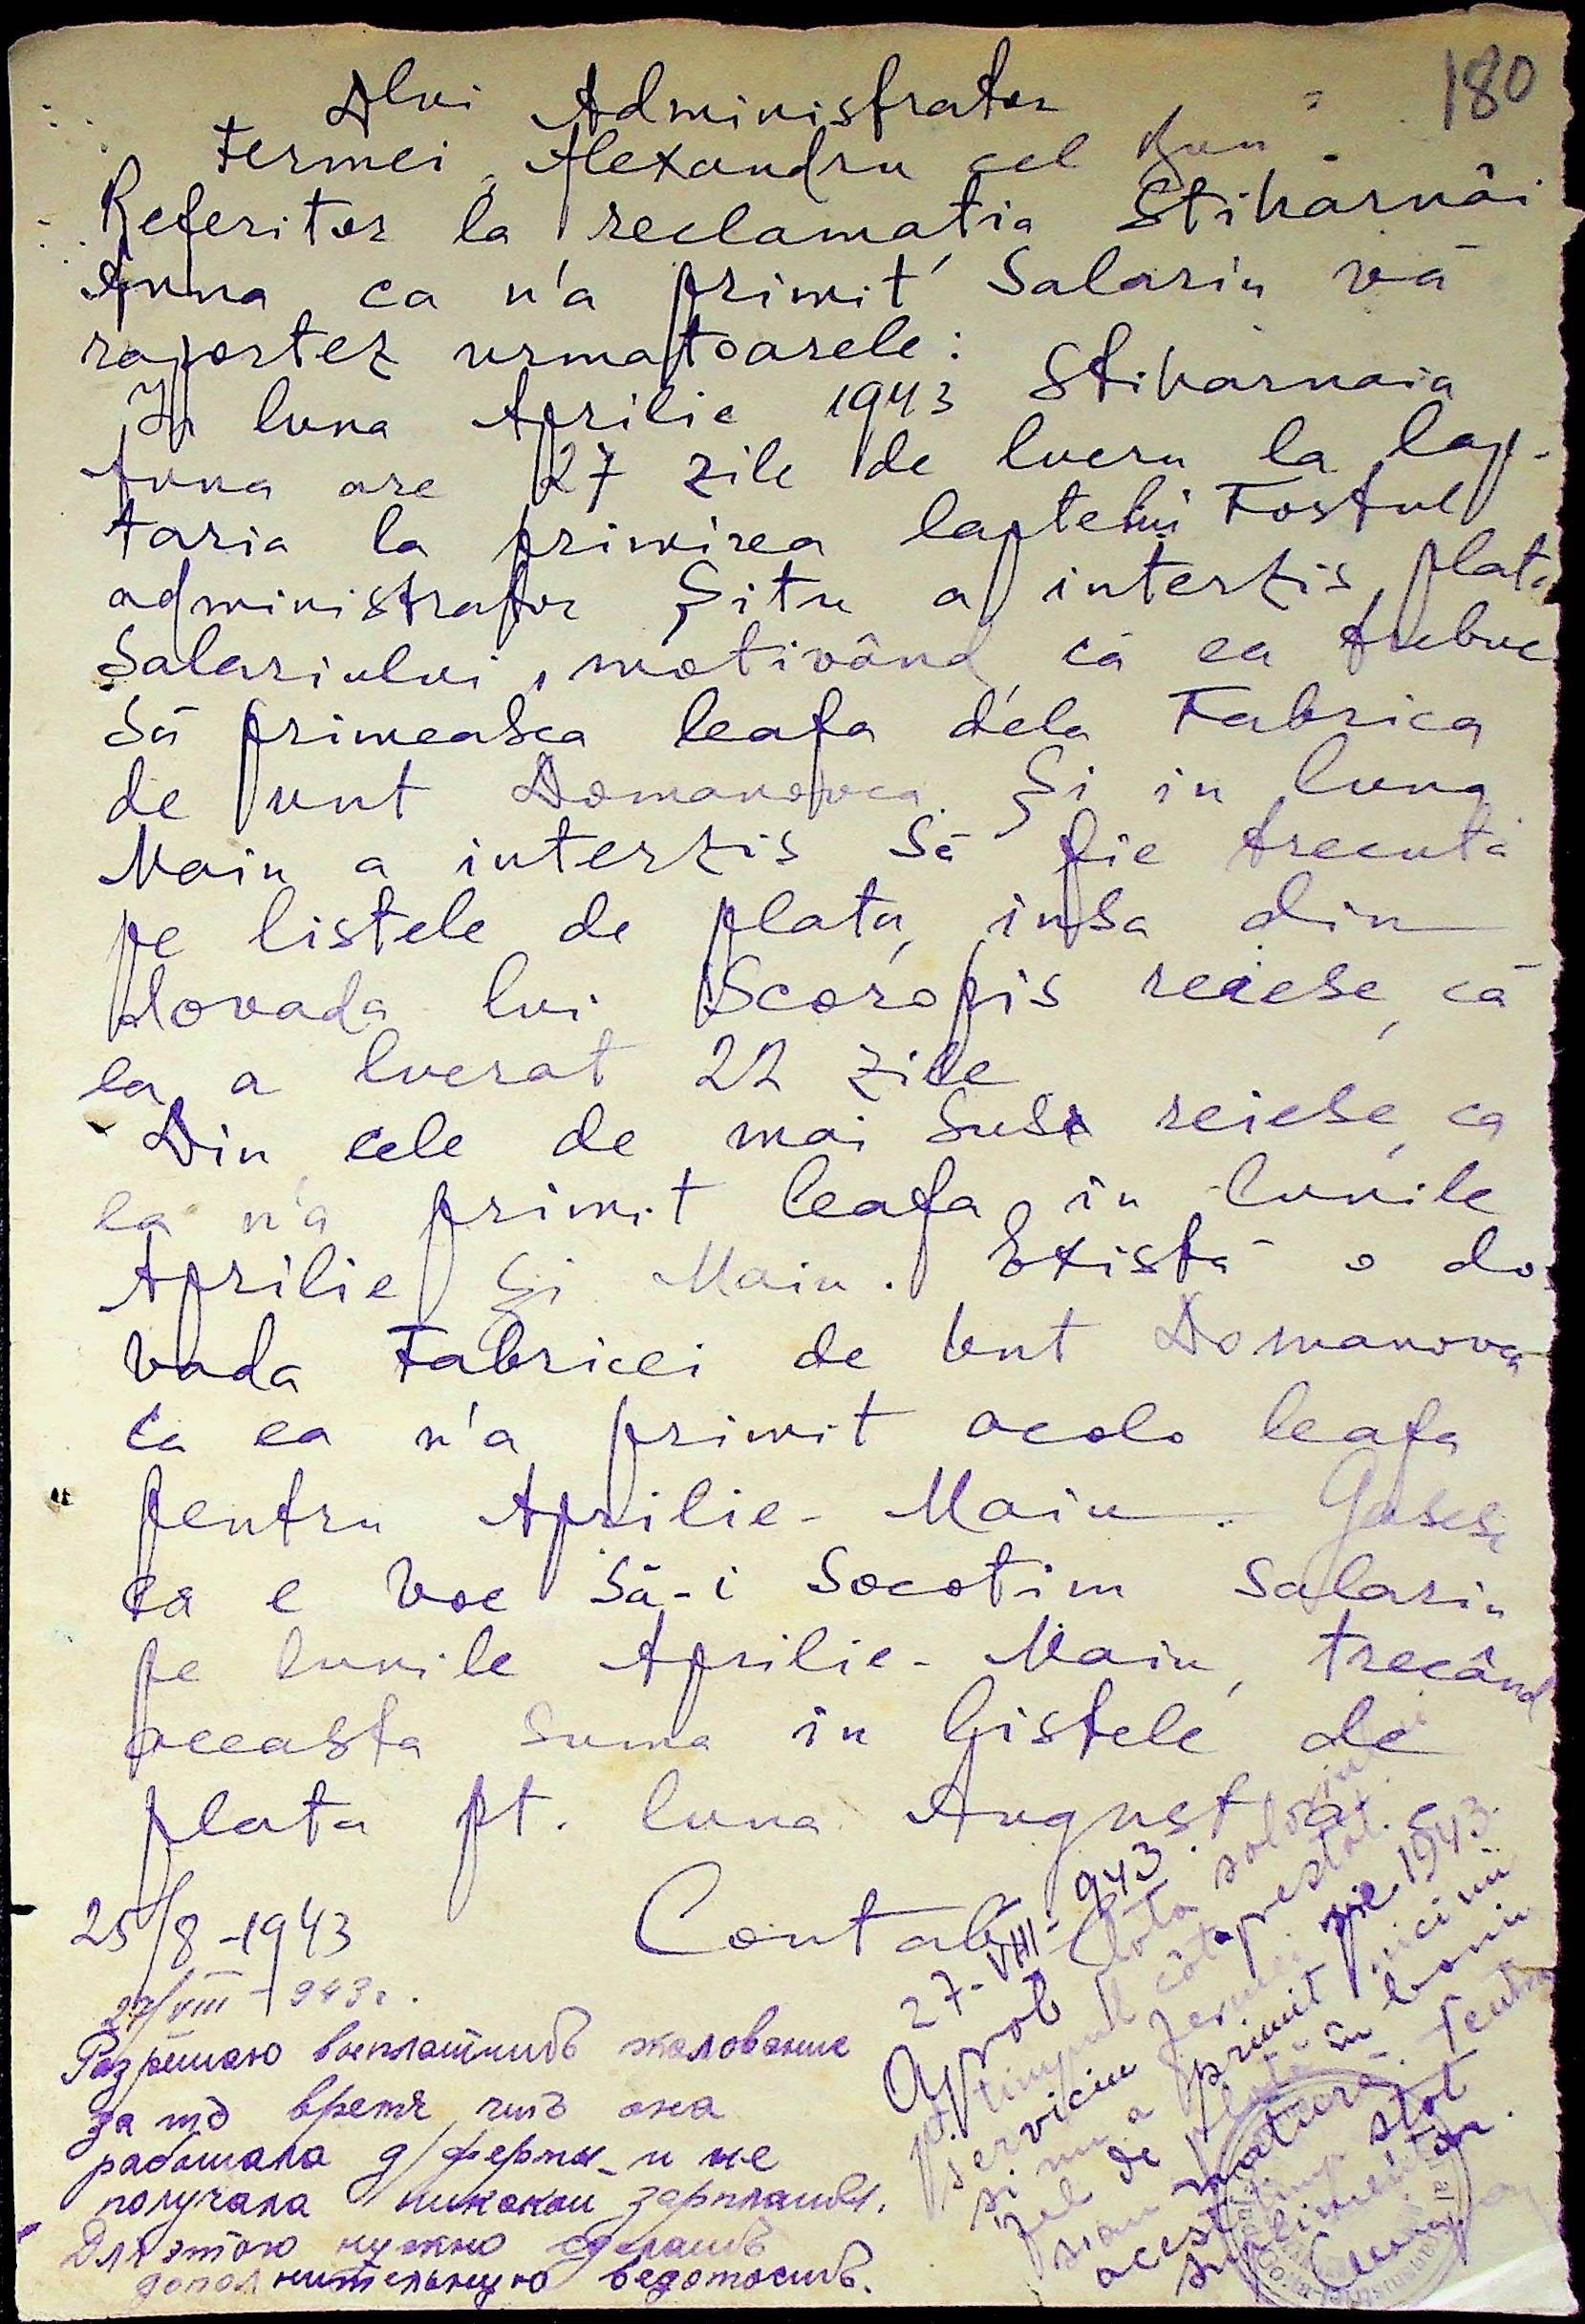 180
Dlui Administrator
Fermei „Alexandru cel Bun"
Referitor la reclamatia Stiharnâi
Anna ca n'a primit salariu vă
raportez urmatoarele:
In luna Aprilie 1943 Stiharnaia
Anna are 27 zile de lucru la lap-
taria la primirea laptelui Fostul
administrator Șitu a interzis plata
Salariului, motivând, că ea trebue
să primeasca leafa dela Fabrica
de unt Domanovca. Și in luna
Maiu a interzis să fie trecută
pe listele de plată, insa din
dovada lui Scoropis reiese, că
ea a lucrat 22 zile
Din cele de mai sus reiese, ca
ea n'a primit leafa in lunile
Aprilie și Maiu. Există o do-
vada Fabricei de Unt Domanovca
ca ea n'a primit acolo leafa
pentru Aprilie - Maiu. Găsesc,
ca e voe să-i socotim salariu
pe lunile Aprilie - Maiu, trecând
aceasta suma in listele de
plata pt. luna August a. c.
25/8-1943 Contabil
27/VIII-943г.
Разрешаю выплатить жалование
за то время что она
работала д/фермы и не
получала никакой зарплаты.
Для этого нужно сделать
дополнительную ведомость.
27-VIII-943.
Aprob plata salariului
pt. timpul cât a prestat
serviciu fermei pe 1943.
si nu a primit nici un
fel de plată în bani
sau natură. Pentru
acest timp stat
suplimentar.